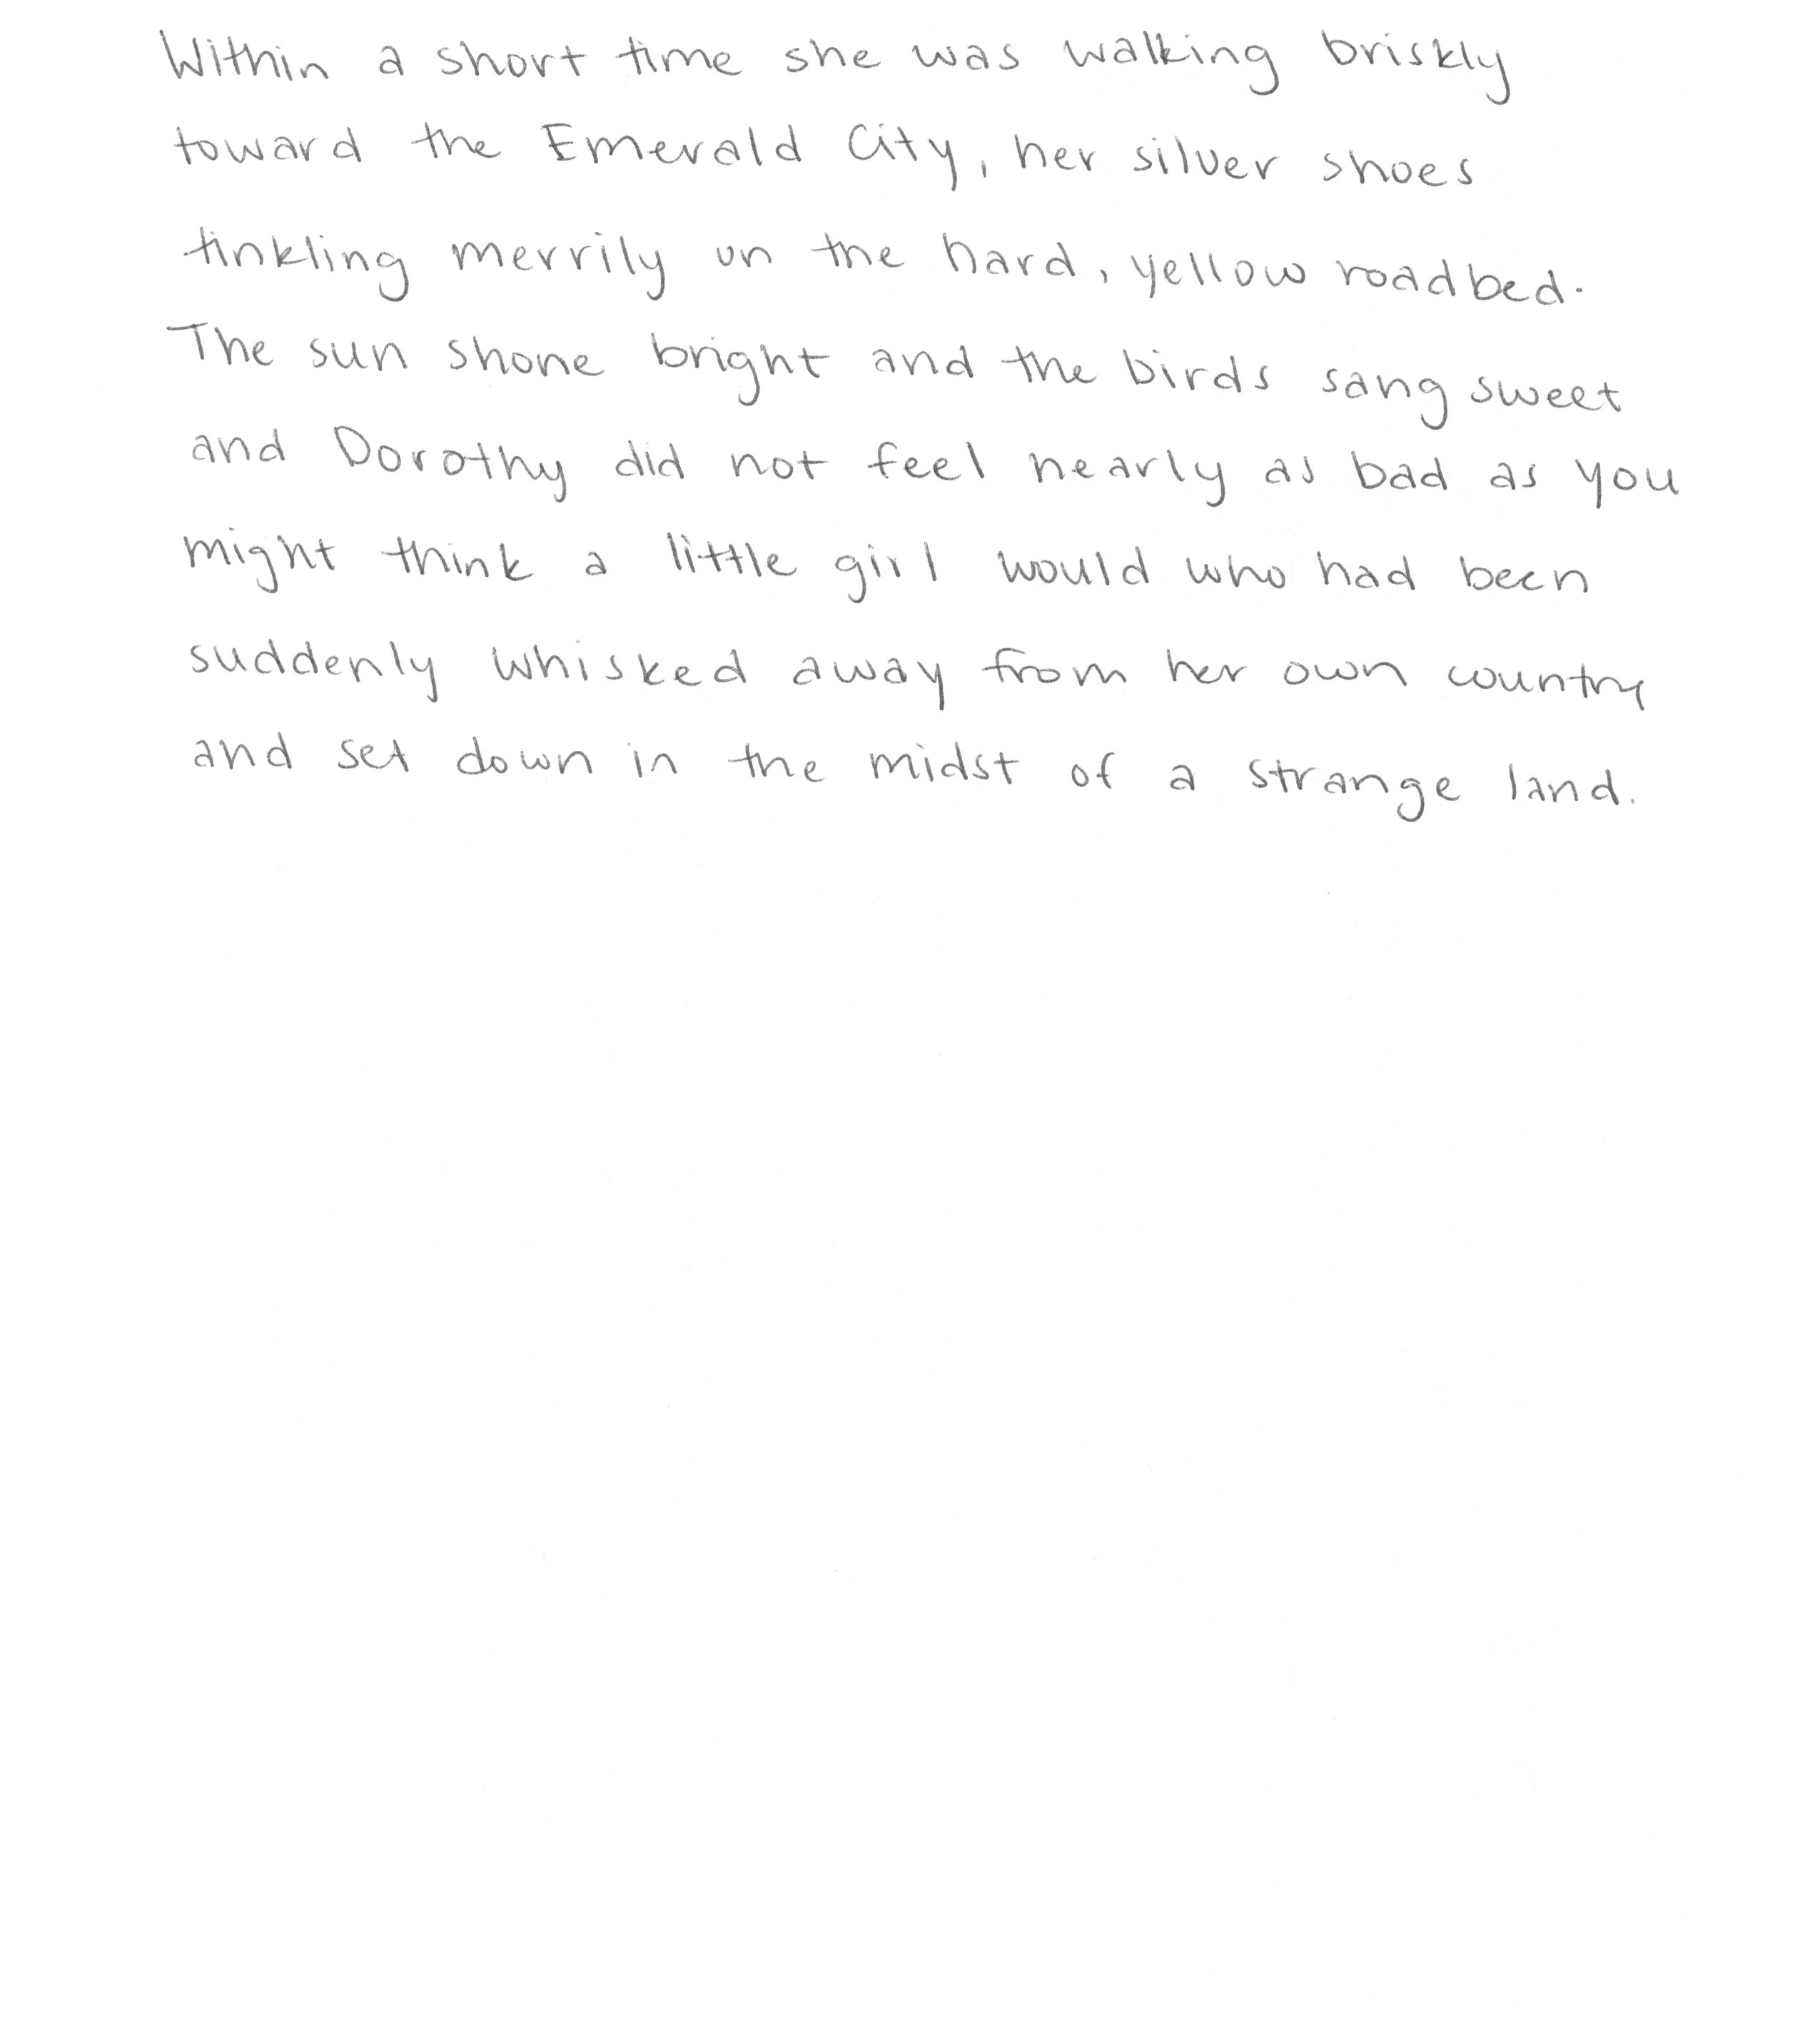 Within a short time she was walking briskly
toward the Emerald City, her silver shoes
tinkling merrily on the hard, yellow roadbed.
The sun shone bright and the birds sang sweet
and Dorothy did not feel nearly as bad as you
might think a little girl would who had been
suddenly whisked away from her own country
and set down in the midst of a strange land.